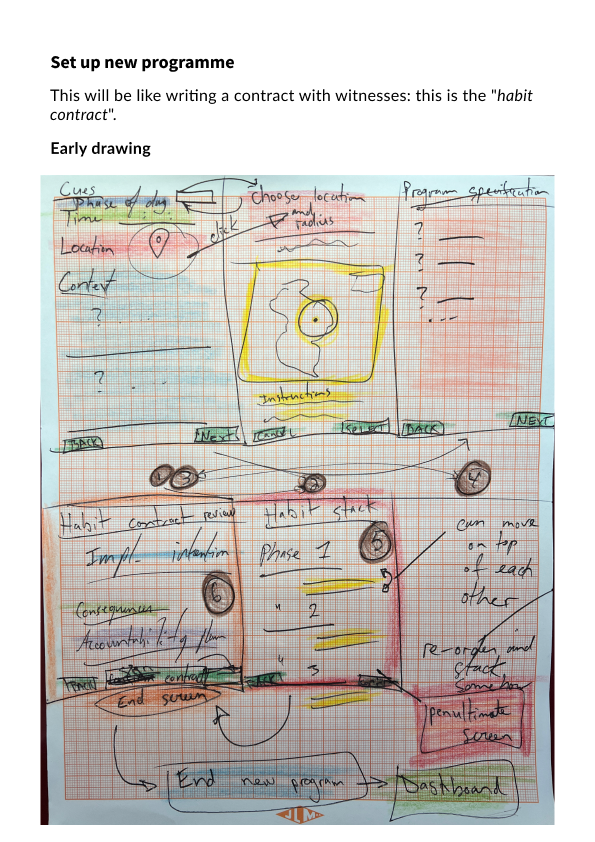 Set up new programme
This will be like writing a contract with witnesses: this is the "habit
contract".
Early drawing
Cues
Phase of day
Time
Location
Context
?
?
BACK
NEXT
click
Choose location
and
radius
Instructions
Cancel
SELECT
Program specification
?
?
?
BACK
NEXT
1 3
2
4
Habit contract review
Impl. intention
6
Consequences
Accountability plan
BACK
contract
End screen
Habit stack
Phase 1
5
" 2
" 3
can move
on top
of each
other
re-order and
stack
somehow
penultimate
screen
End new program
Dashboard
JLM